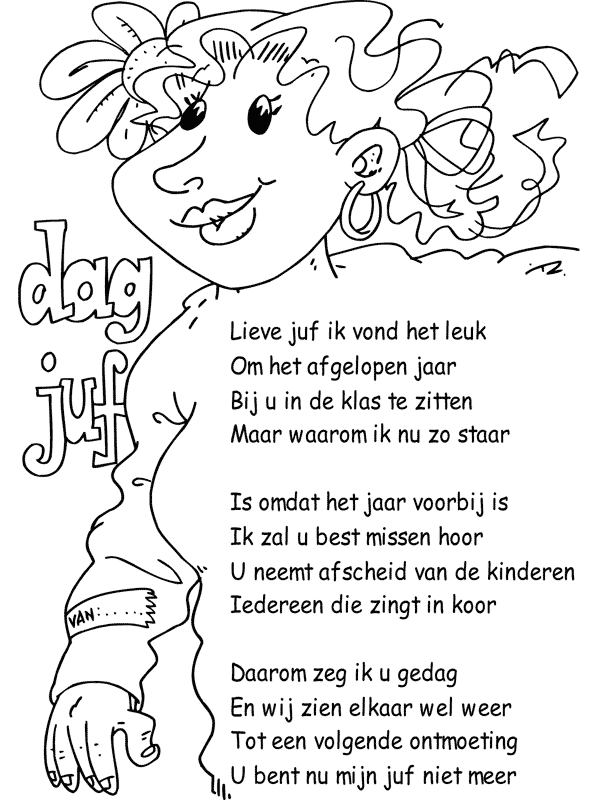 dag
juf
Lieve juf ik vond het leuk
Om het afgelopen jaar
Bij u in de klas te zitten
Maar waarom ik nu zo staar
Is omdat het jaar voorbij is
Ik zal u best missen hoor
U neemt afscheid van de kinderen
Iedereen die zingt in koor
Daarom zeg ik u gedag
En wij zien elkaar wel weer
Tot een volgende ontmoeting
U bent nu mijn juf niet meer
VAN:.....